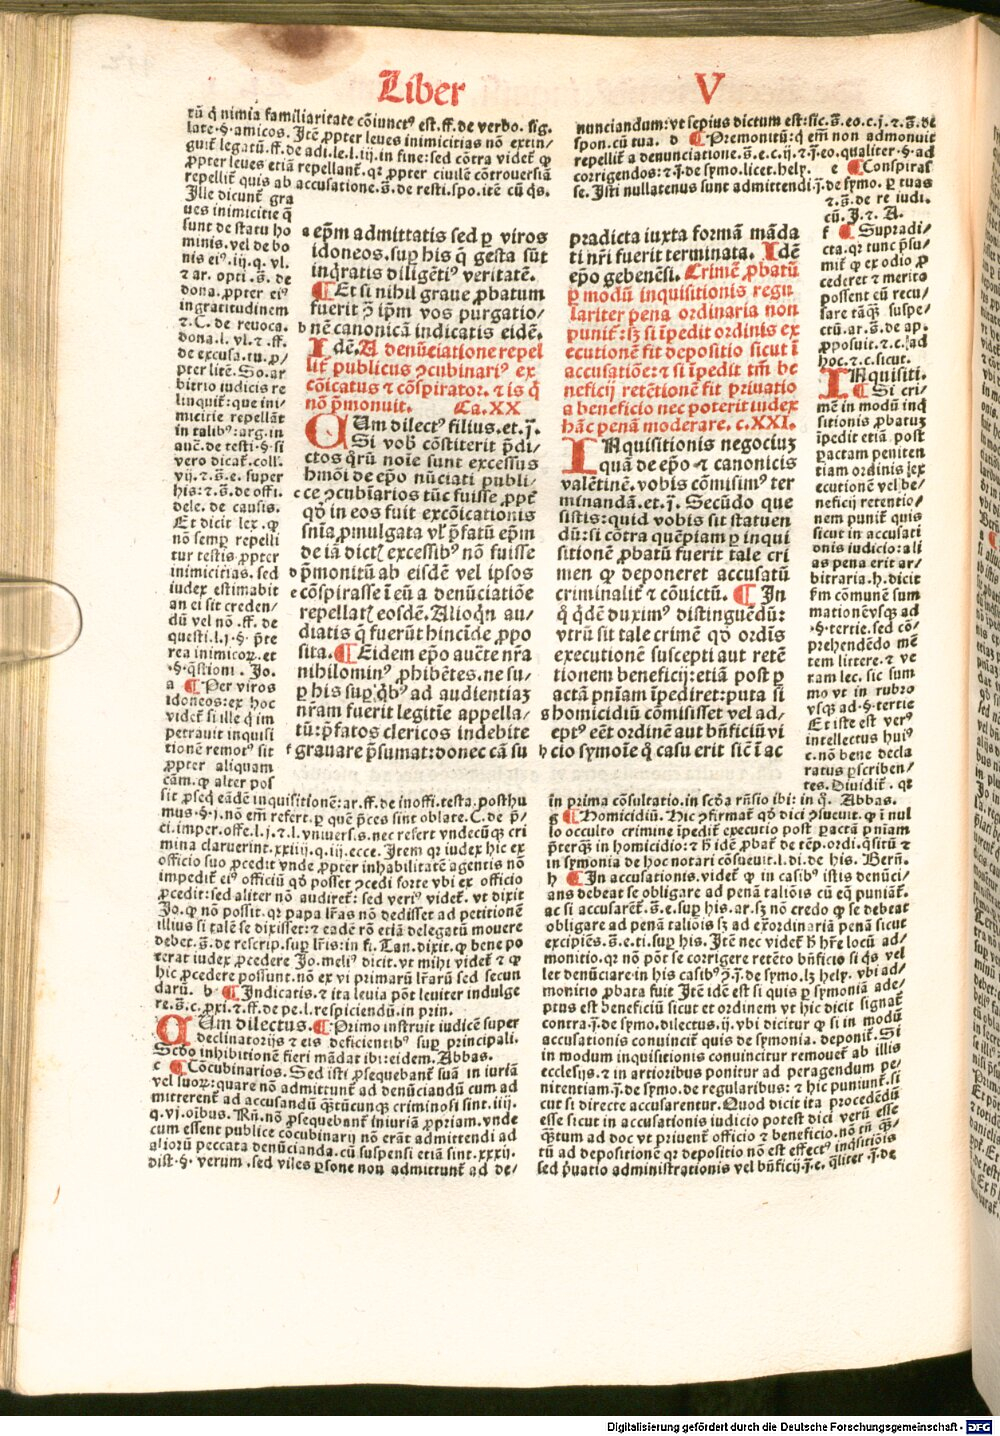 Liber V
tū q̄ nimia familiaritate cōiunctꝰ est.ff.de verbo. sig.
late.§.amicos. Itē ꝓpter leues inimicitias nō extin/
guit̄ legatū.ff.de adi.le.l.iij.in fine: sed cōtra videt̄ ꝙ
ꝓpter leues etiā repellant̄. qꝛ ꝓpter ciuilē cōtrouersiā
repellit̄ quis ab accusatione.s̄.de resti.spo.itē cū q̄s.
Ille dicunt̄ gra
ues inimicitie q̄
sunt de statu ho
minis.vel de bo
nis eiꝰ.iij.q. vl.
⁊ ar. opti .s̄. de
dona.ꝓpter eiꝰ
ingratitudinem
⁊.C. de reuoca.
dona.l. vl.⁊ .ff.
de excusa.tu.ꝑ/
pter litē. So.ar
bitrio iudicis re
linquit̄: que ini/
micitie repellāt
in talibꝰ: arg.in
auc̄.de testi.§.si
vero dicat̄.coll.
vij.⁊.s̄.e. super
his:⁊.s̄.de offi.
dele. de causis.
Et dicit lex .ꝙ
nō semꝑ repelli
tur testis ꝓpter
inimicitias. sed
iudex estimabit
an ei sit creden/
dū vel nō .ff. de
questi.l.j.§. p̄te
rea inimicoꝝ.et
.§.q̄stioni . Jo.
a ¶ Per viros
idoneos:ex hoc
videt̄ si ille q̄ im
petrauit inquisi
tionē remotꝰ sit
ꝓpter aliquam
cām.ꝙ alter pos
sit ꝓseq̄ eādē inquisitionē: ar.ff.de inoffi.testa.posthu
mus.§.j.nō em̄ refert.ꝑ quē p̄ces sint oblate.C.de p̄/
ci.imper.offe.l.j.⁊.l.vniuers.s.nec refert vndecūqꝫ cri
mina claruerint.xxiij.q.iij.ecce. Item qꝛ iudex hic ex
officio suo ꝓcedit vnde ꝓpter inhabilitatē agentis nō
impedit̄ eiꝰ officiū qd̄ posset ꝓcedi forte vbi ex officio
ꝓcedit: sed aliter nō audiret̄: sed veriꝰ videt̄. vt dixit
Jo.ꝙ nō possit.qꝛ papa lr̄as nō dedisset ad petitionē
illius si talē se dixisset: ⁊ eadē rō etiā delegatū mouere
debet.s̄.de rescrip.suꝑ lr̄is:in fi. Tan.dixit.ꝙ bene po
terat iudex ꝓcedere Jo.meliꝰ dicit.vt mihi videt̄ ⁊ ꝙ
hic ꝓcedere possunt.nō ex vi primarū lr̄arū sed secun
darū. b ¶ Indicatis.⁊ ita leuia pōt leuiter indulge
re.s̄.c.ꝓxi.⁊.ff.de pe.l.respiciendū.in prin.
QUum dilectus.¶ Primo instruit iudicē super
declinatorijs ⁊ eis deficientibꝰ suꝑ principali.
Scdo inhibitionē fieri mādat ibi: eidem. Abbas.
c ¶ Cōcubinarios. Sed isti ꝓsequebant̄ suā in iuriā
vel suoꝝ: quare nō admittunt̄ ad denūciandū cum ad
mitterent̄ ad accusandū q̄ꝫtūcunqꝫ criminosi sint.iiij.
q.vj.oibus. Rn̄.nō ꝓsequebant̄ iniuriā ꝓpriam.vnde
cum essent publice cōcubinarij nō erāt admittendi ad
aliorū peccata denūcianda.cū suspensi etiā sint.xxxij.
dist.§. verum .sed viles ꝑsone non admittunt̄ ad de/
a ep̄m admittatis sed ꝑ viros
idoneos.suꝑ his q̄ gesta sūt
inq̄ratis diligētiꝰ veritatē.
¶ Et si nihil graue ꝓbatum
fuerit ꝓ ip̄m vos purgatio/
b nē canonicā indicatis eidē.
Idē.A denūciatione repel
lit̄ publicus ꝯcubinariꝰ ex
cōicatus ⁊ cōspirator. ⁊ is q̄
nō p̄monuit. Ca.XX
QUum dilectꝰ filius.et.j̄.
Si vobꝭ cōstiterit p̄di/
ctos qr̄ū noīe sunt excessus
hmōi de ep̄o nūciati publi/
c ce ꝯcubīarios tūc fuisse ꝓpt̄
qd̄ in eos fuit excōicationis
sn̄ia ꝓmulgata vl̓ p̄fatū ep̄m
de iā dictꝭ excessibꝰ nō fuisse
d p̄monitū ab eisdē vel ipsos
e cōspirasse ī eū a denūciatiōe
repellatꝭ eosdē. Alioqn̄ au/
diatis q̄ fuerūt hincīde ꝓpo
sita.¶ Eidem ep̄o auc̄te nr̄a
nihilominꝰ ꝓhibētes.ne su/
ꝑ his suꝑ q̄bꝰ ad audientiaꝫ
nr̄am fuerit legitīe appella/
tū: p̄fatos clericos indebite
f grauare p̄sumat: donec cā su
pradicta iuxta formā māda
ti nr̄i fuerit terminata. Idē
ep̄o gebenēsi. Crimē ꝓbatū
ꝑ modū inquisitionis regu
lariter pena ordinaria non
punit̄: sꝫ si īpedit ordinis ex
ecutionē fit depositio sicut ī
accusatiōe: ⁊ si īpedit tm̄ be
neficij retētionē fit priuatio
a beneficio nec poterit iudex
hāc penā moderare. c.XXI.
INquisitionis negociuꝫ
quā de ep̄o ⁊ canonicis
valētinē.vobis cōmisimꝰ ter
minandā.et.j̄. Secūdo que
sistis: quid vobis sit statuen
dū: si cōtra quēpiam ꝑ inqui
sitionē ꝓbatū fuerit tale cri
men ꝙ deponeret accusatū
criminalit̄ ⁊ cōuictū. ¶ In
q̄ q̄dē duximꝰ distinguēdū:
vtrū sit tale crimē qd̄ ordīs
executionē suscepti aut retē
tionem beneficij: etiā post ꝑ
actā pn̄iam īpediret: puta si
g homicidiū cōmisisset vel ad/
eptꝰ eēt ordinē aut bn̄ficiū vi
h cio symoīe q̄ casu erit sic̄ ī ac
nunciandum: vt sepius dictum est: sic.s̄.eo.c.j.⁊.s̄.de
spon.cū tua. d ¶ Premonitū: q̄ em̄ non admonuit
repellit̄ a denunciatione.s̄.e.c.ij.⁊.j̄.eo.qualiter.§.ad
corrigendos: ⁊.j̄.de symo.licet.hely. e ¶ Conspiras
se. Isti nullatenus sunt admittendi.j̄.de symo. ꝑ tuas
⁊.s̄.de re iudi.
cū. J.⁊. A.
f ¶ Supradi/
cta.qꝛ tunc p̄su/
mit̄ ꝙ ex odio ꝓ
cederet ⁊ merito
possent eū recu/
sare tāqꝫ suspe/
ctū.ar.s̄.de ap.
ꝓposuit.⁊.c.ad
hoc.⁊.c.sicut.
INquisiti.
¶ Si cri/
mē in modū inq̄
sitionis ꝓbatuꝫ
īpedit etiā post
ꝑactam peniten
tiam ordinis ex
ecutionē vel be/
neficij retentio/
nem punit̄ quis
sicut in accusati
onis iudicio: ali
as pena erit ar/
bitraria.h. dicit
fm cōmunē sum
mationēvsqꝫ ad
.§.tertie.sed cō/
prehendēdo mē
tem littere.⁊ ve
ram lec. sic sum
mo vt in rubro
vsqꝫ ad.§.tertie
Et iste est verꝰ
intellectus huiꝰ
c.nō bene decla
ratus ꝑscriben/
tes. Diuidit̄ . qꝛ
in prima cōsultatio.in scd̄a rn̄sio ibi: in q̄. Abbas.
g ¶ Homicidiū. Hic ꝯfirmat̄ qd̄ dici ꝯsueuit.ꝙ ī nul
lo occulto crimine īpedit̄ executio post ꝑactā pn̄iam
p̄terqꝫ in homicidio: ⁊ h̄ idē ꝓbat̄ de tēp.ordi.q̄sitū ⁊
in symonia de hoc notari cōsueuit.l.di.de his. Bern̄.
h ¶ In accusationis.videt̄ ꝙ in casibꝰ istis denūci/
ans debeat se obligare ad penā taliōis cū eq̄ puniat̄.
ac si accusaret̄.s̄.e.suꝑ his.ar.sꝫ nō credo ꝙ se debeat
obligare ad penā talionis sꝫ ad exꝛordinariā penā sicut
excipiēs.s̄.e.ti.suꝑ his. Itē nec videt̄ h̄ hr̄e locū ad/
monitio.qꝛ nō pōt se corrigere retēto bn̄ficio si q̄s vel
let denūciare in his casibꝰ ꝯ.j̄.de symo.lꝫ hely. vbi ad/
monitio ꝓbata fuit Itē idē est si quis ꝑ symoniā ade/
ptus est beneficiū sicut et ordinem vt hic dicit signat̄
contra.j̄.de symo.dilectus.ij. vbi dicitur ꝙ si in modū
accusationis conuincit̄ quis de symonia. deponit̄. Si
in modum inquisitionis conuincitur remouet̄ ab illis
ecclesijs.⁊ in artioribus ponitur ad peragendum pe/
nitentiam.j̄.de symo.de regularibus: ⁊ hic puniunt̄.si
cut si directe accusarentur. Quod dicit ita procedēdū
esse sicut in accusationis iudicio potest dici verū esse
q̄ꝫtum ad doc vt priuent̄ officio ⁊ beneficio.nō tn̄ q̄ꝫ/
tū ad depositionē qꝛ depositio nō est effectꝰ inq̄sitiōis
sed p̄uatio administrationis vel bn̄ficij.j̄.e. q̄liter .j̄.de